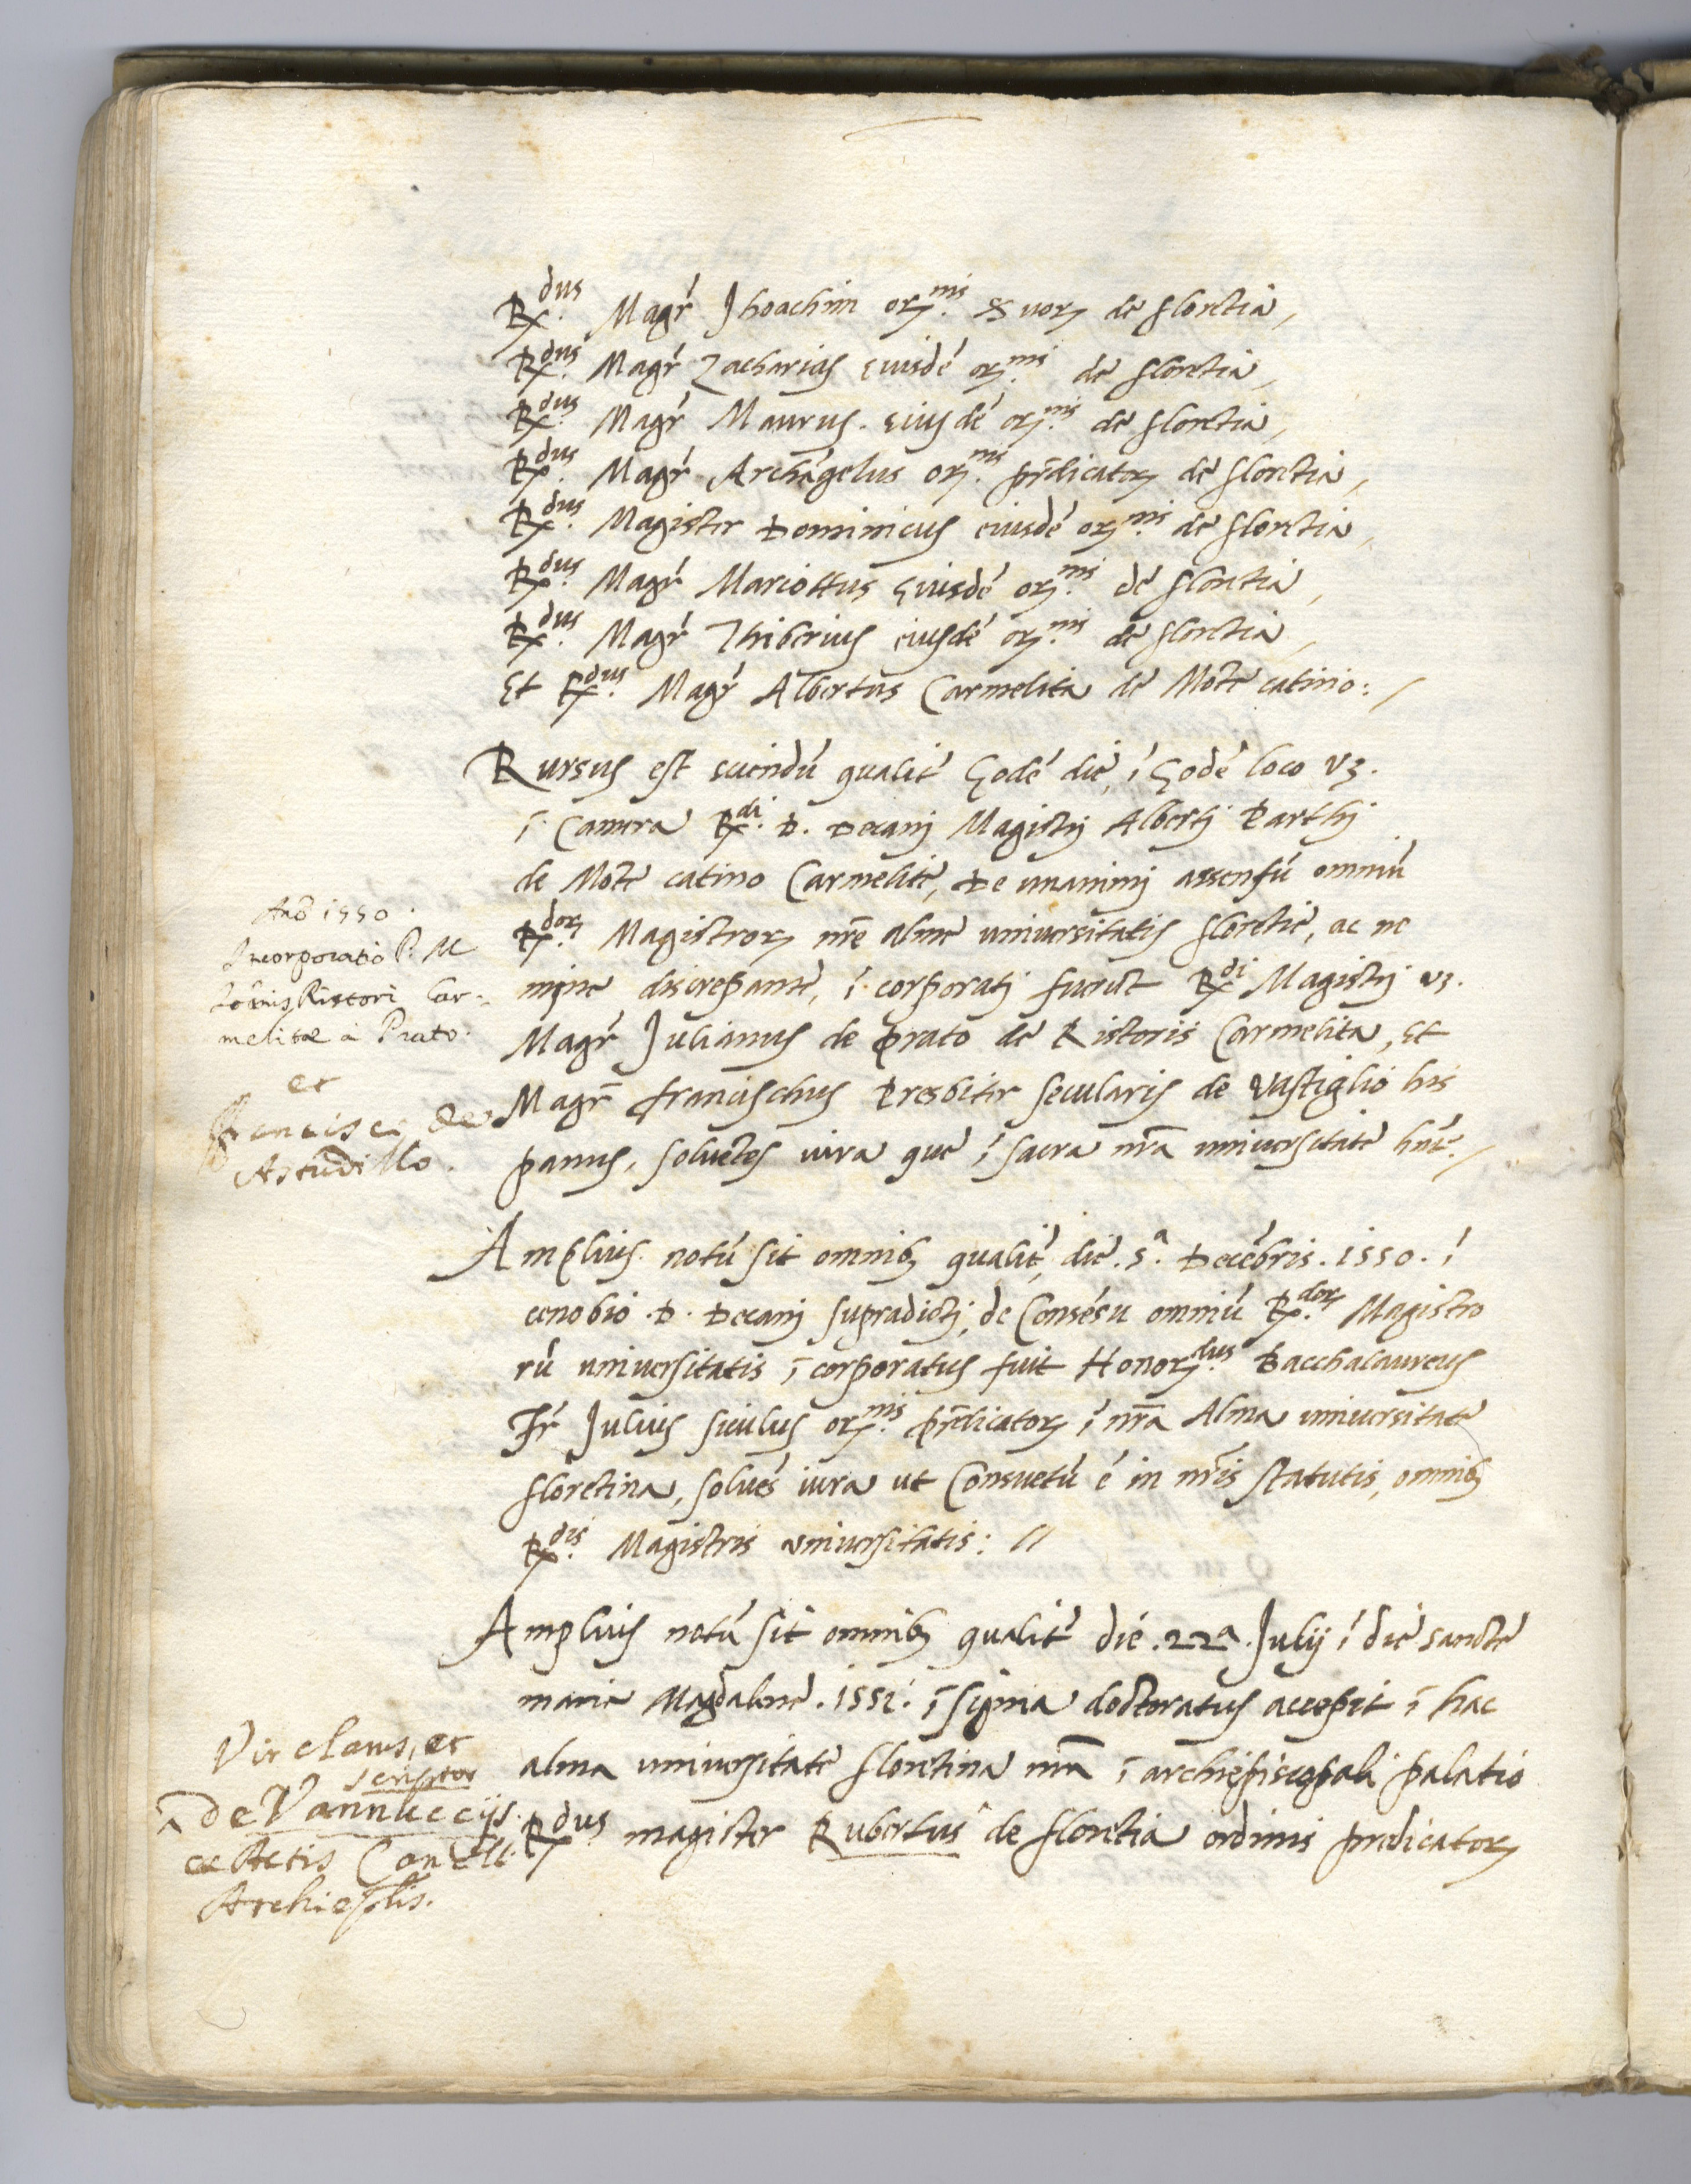 R.dus Magr̃ Jhoachim orꝫ.nis Suorꝫ de florẽtia,
R.dus Magr̃ Zacharias eiusdẽ orꝫ.nis de florẽtia,
R.dus Magr̃ Maurus. eiusdẽ orꝫ.nis de florẽtia,
R.dus Magr̃ Archãgelus orꝫ.nis pr̃dicatorꝫ de florẽtia,
R.dus Magister Dominicus eiusdẽ orꝫ.nis de florẽtia,
R.dus Magr̃ Mariottus eiusdẽ orꝫ.nis de florẽtia,
R.dus Magr̃ Thiberius eiusdẽ orꝫ.nis de florẽtia,
Et R.dus Magr̃ Albertus Carmelita de Mõte catino:/
Rursus est sciendũ qualit̃ Eodẽ die, ĩ Eodẽ loco vꝫ.
ĩ Camera R.di D. Decanj Magistrj Albertj Parthj
de Mõte catino Carmelite, De unanimj assensũ omniũ
R.dorꝫ Magistrorꝫ nr̃e alme universitatis florẽtie, ac ne
mine discrepante, ĩ corporatj fuerũt R.di Magistrj vꝫ.
Magr̃ Julianus de prato de Ristoris Carmelita, Et
Magr̃ francischus Presbiter secularis de Vastiglio his
panus, solvẽtes iura que ĩ sacra nr̃a universitate hñt:/
Ano 1550.
Incorporatio P. M
Ioãnis Ristori Car-
melitæ à Prato.
et
Francisci de
Astudillo.
Amplius notũ sit omnibꝫ qualit̃, die. 5ª. Decẽbris. 1550. ĩ
cenobio .D. Decanj supradictj, de Consẽsu omniũ R.dorꝫ Magistro
rũ universitatis ĩ corporatus fuit Honorꝫ.dus Bacchalaureus
Fr̃ Julius siculus orꝫ.nis pr̃dicatorꝫ ĩ nr̃a Alma universitate
florẽtina, solvẽs iura ut Consuetũ ẽ in nr̃is statutis, omnibꝫ
R.dis Magistris universitatis: //
Amplius notũ sit omnibꝫ qualit̃ die .22ª. Julij ĩ die sancte
marie Magdalene. 1551. ĩ signia doctoratus accepit ĩ hac
alma universitate florẽtina nr̃a ĩ archiepiscopali palatio
R.dus magister Rubertus ^ de florẽtia ordinis predicatorꝫ
Vir clarus, et
scriptor
^ de Vannucciis.
ex Actis Cancell.
Archiepl̃is.